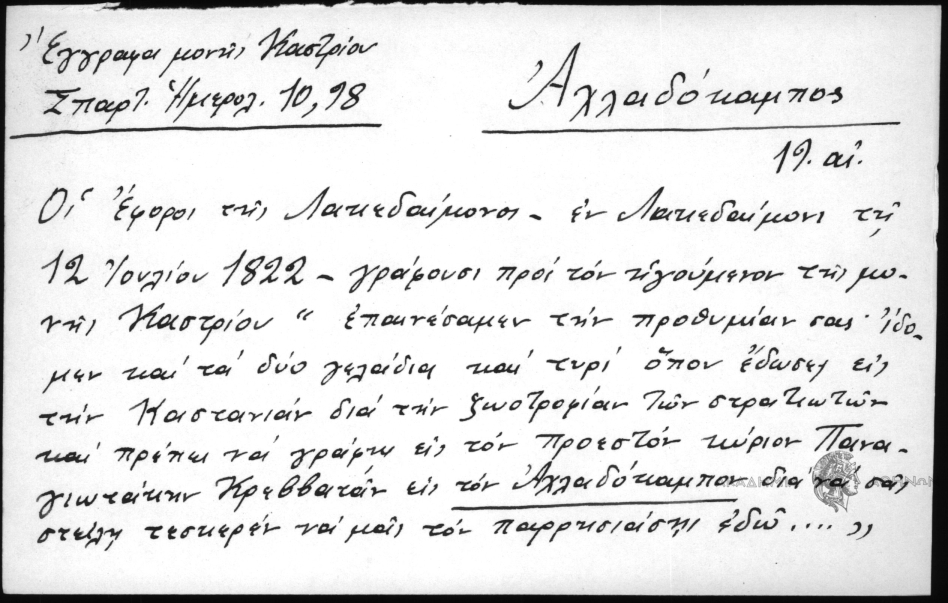 Ἔγγραφα μονῆς Καστρίου
Σπαρτ. Ἡμερολ. 10, 98
Ἀχλαδόκαμπος
19. αἰ.
Οἱ Ἔφοροι τῆς Λακεδαίμονος - ἐν Λακεδαίμονι τῇ
12 Ἰουλίου 1822 - γράφουσι πρός τόν ἡγούμενον τῆς μο-
νῆς Καστρίου " ἐπαινέσαμεν τήν προθυμίαν σας· ἴδο-
μεν καί τά δύο γελάδια καί τυρί ὅπου ἔδωσες εἰς
τήν Καστανιάν διά τήν ζωοτροφίαν τῶν στρατιωτῶν
καί πρέπει νά γράψω εἰς τόν προεστόν κύριον Πανα-
γιωτάκην Κρεββατᾶν εἰς τόν Ἀχλαδόκαμπον διά νά σᾶς
στείλῃ τεσκερέν νά μᾶς τόν παρρησιάσῃς ἐδῶ .... "